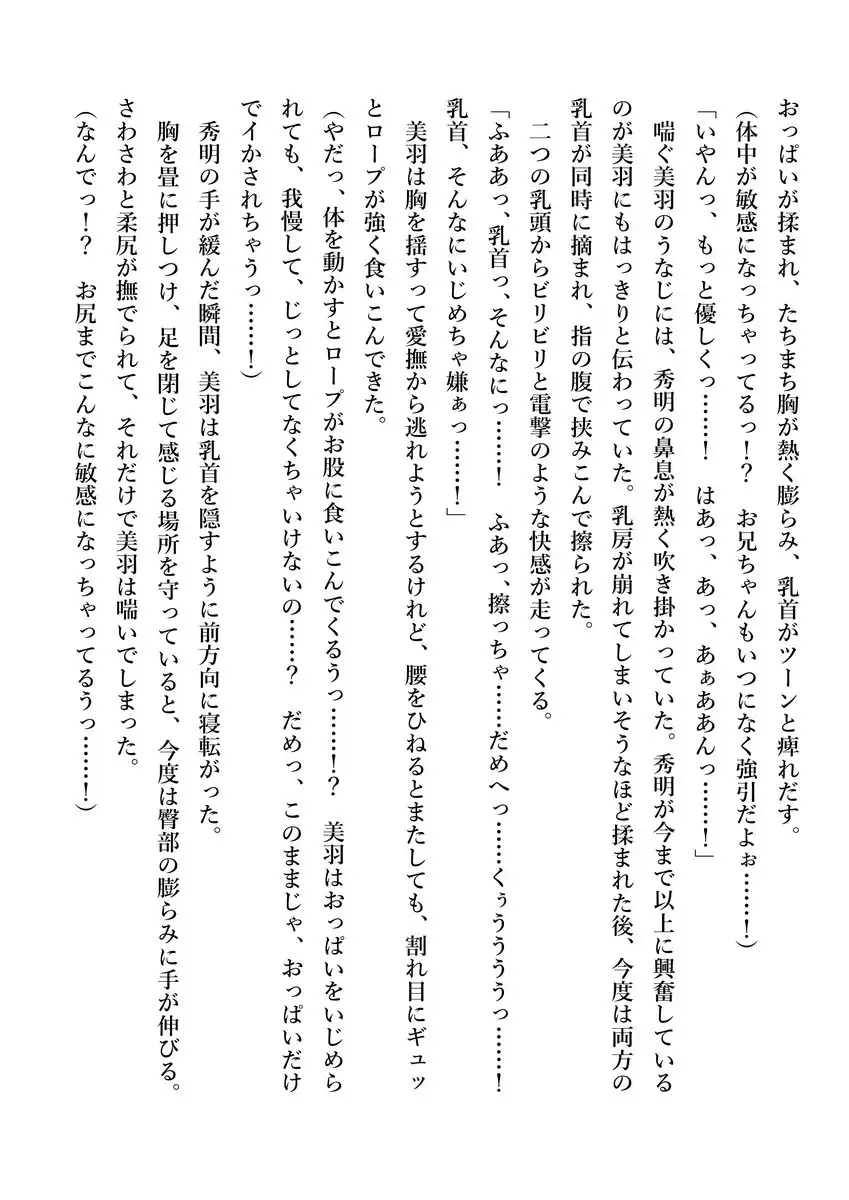 おっぱいが揉まれ、たちまち胸が熱く膨らみ、乳首がツーンと痺れだす。
(体中が敏感になっちゃってるっ！？　お兄ちゃんもいつになく強引だよぉ……！)
「いやんっ、もっと優しくっ……！　はあっ、あっ、あぁああんっ……！」
　喘ぐ美羽のうなじには、秀明の鼻息が熱く吹き掛かっていた。秀明が今まで以上に興奮している
のが美羽にもはっきりと伝わっていた。乳房が崩れてしまいそうなほど揉まれた後、今度は両方の
乳首が同時に摘まれ、指の腹で挟みこんで擦られた。
　二つの乳頭からビリビリと電撃のような快感が走ってくる。
「ふああっ、乳首っ、そんなにっ……！　ふあっ、擦っちゃ……だめへっ……くぅうううっ……！
乳首、そんなにいじめちゃ嫌ぁっ……！」
　美羽は胸を揺すって愛撫から逃れようとするけれど、腰をひねるとまたしても、割れ目にギュッ
とロープが強く食いこんできた。
(やだっ、体を動かすとロープがお股に食いこんでくるうっ……！？　美羽はおっぱいをいじめら
れても、我慢して、じっとしてなくちゃいけないの……？　だめっ、このままじゃ、おっぱいだけ
でイかされちゃうっ……！)
　秀明の手が緩んだ瞬間、美羽は乳首を隠すように前方向に寝転がった。
　胸を畳に押しつけ、足を閉じて感じる場所を守っていると、今度は臀部の膨らみに手が伸びる。
さわさわと柔尻が撫でられて、それだけで美羽は喘いでしまった。
(なんでっ！？　お尻までこんなに敏感になっちゃってるうっ……！)